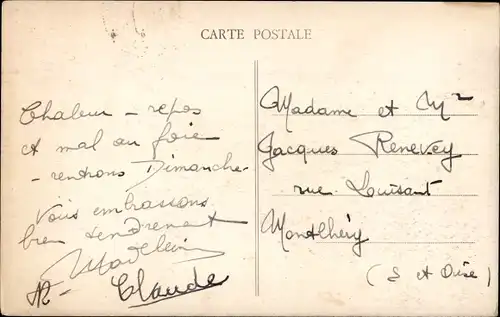 CARTE POSTALE
Chaleur - repos
et mal au foie
- rentrons Dimanche -
Vous embrassons
bien tendrement
Madeleine
Claude
Madame et Mr
Jacques Renevey
rue Louisant
Montlhéry
(S et Oise)